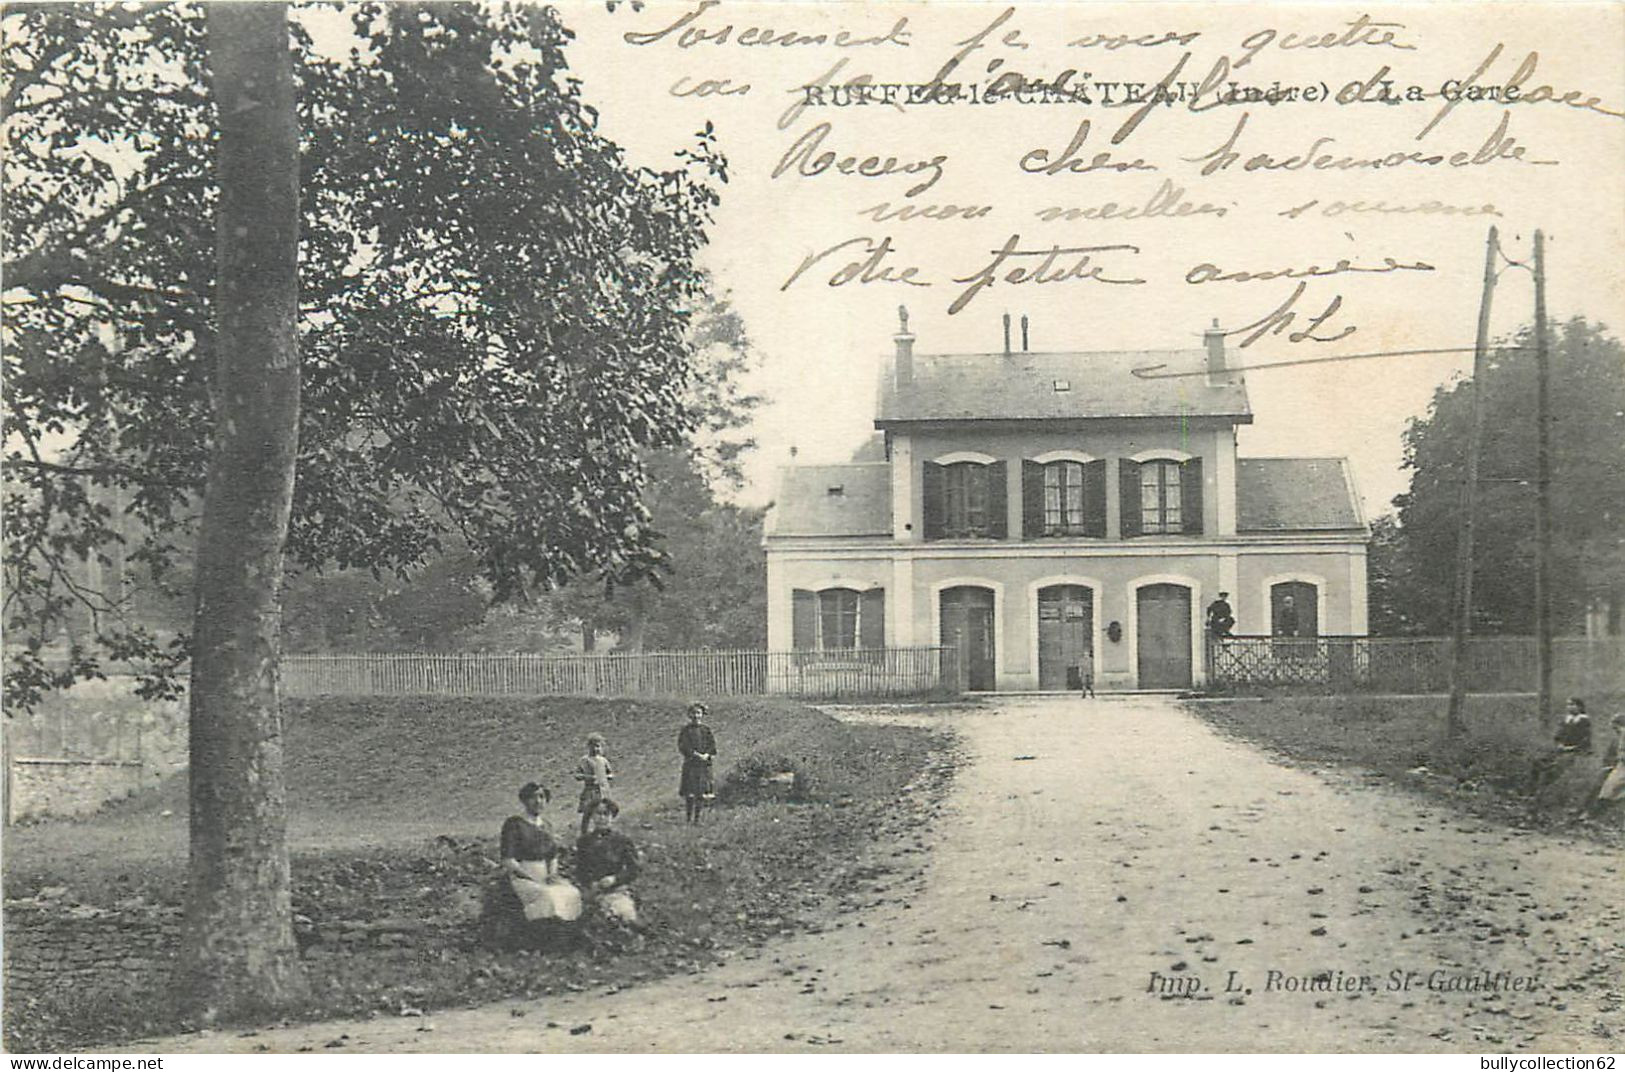 Forcement je vous quitte
car je n'ai plus de place
RUFFEC-le-CHÂTEAU (Indre) - La Gare
Recevez cher Mademoiselle
mon meilleur souvenir
Votre petite amie
ML
Imp. L. Roudier, St-Gaultier
bullycollection62